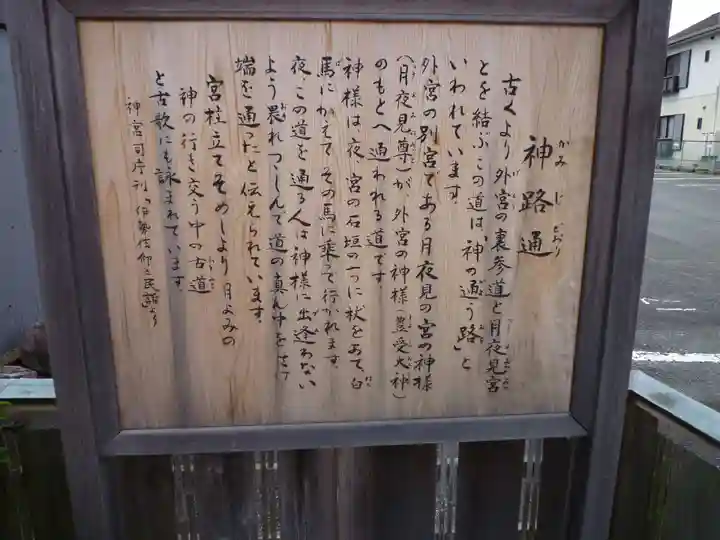 神路通
古くより外宮の裏参道と月夜見宮
とを結ぶこの道は、「神の通う路」と
いわれています。
外宮の別宮である月夜見の宮の神様
(月夜見尊)が、外宮の神様(豊受大神)
のもとへ通われる道です。
神様は、夜、宮の石垣の一つに杖をあて白
馬にかえて、その馬に乗って行かれます。
夜、この道を通る人は神様に出逢わない
よう畏れつつしんで道の真ん中をさけ
端を通ったと伝えられています。
宮柱立てそめしより月よみの
神の行き交う中の古道
と古歌にも詠まれています。
神宮司庁刊「伊勢信仰と民話」より